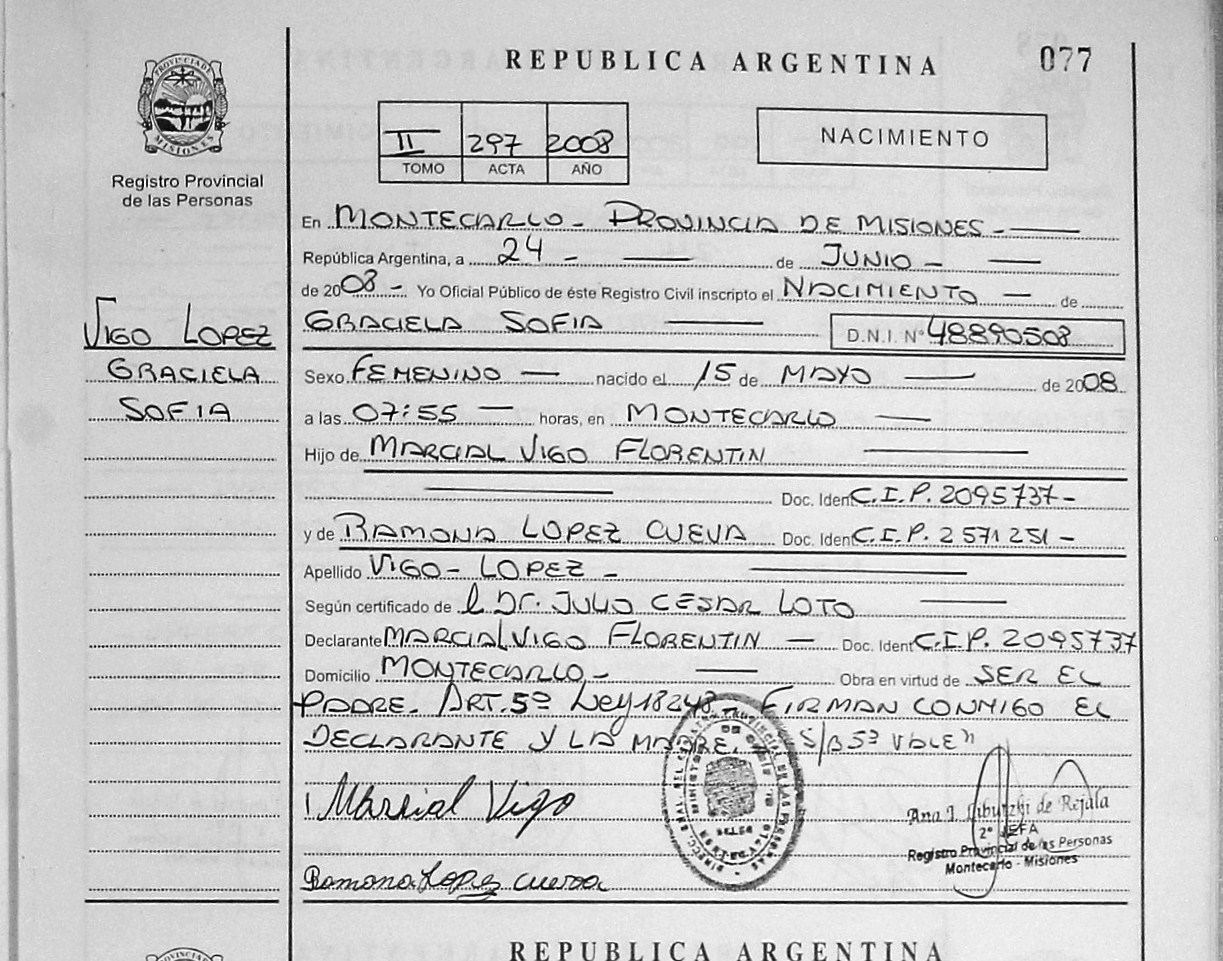 REPUBLICA ARGENTINA
077
PROVINCIA DE
MISIONES
Registro Provincial
de las Personas
II 297 2008
TOMO ACTA AÑO
NACIMIENTO
En MONTECARLO - PROVINCIA DE MISIONES -
República Argentina, a 24 - de JUNIO -
de 2008 - Yo Oficial Público de éste Registro Civil inscripto el NACIMIENTO — de
GRACIELA SOFIA — D.N.I. Nº 48890508
VIGO LOPEZ
GRACIELA
SOFIA
Sexo FEMENINO — nacido el 15 de MAYO — de 2008
a las 07:55 — horas, en MONTECARLO —
Hijo de MARCIAL VIGO FLORENTIN —
— Doc. Ident C.I.P. 2095737 -
y de RAMONA LOPEZ CUEVA Doc. Ident C.I.P. 2571251 -
Apellido VIGO - LOPEZ - —
Según certificado de l Dr. JULIO CESAR LOTO —
Declarante MARCIAL VIGO FLORENTIN — Doc. Ident C.I.P. 2095737
Domicilio MONTECARLO - — Obra en virtud de SER EL
PADRE. ART. 5º Ley 18248 - FIRMAN CONMIGO EL
DECLARANTE Y LA MADRE. S/B 5º VALE"
Marcial Vigo
Ramona Lopez Cueva
Ana de Rejala
2º JEFA
Registro Provincial de las Personas
Montecarlo - Misiones
REPUBLICA ARGENTINA